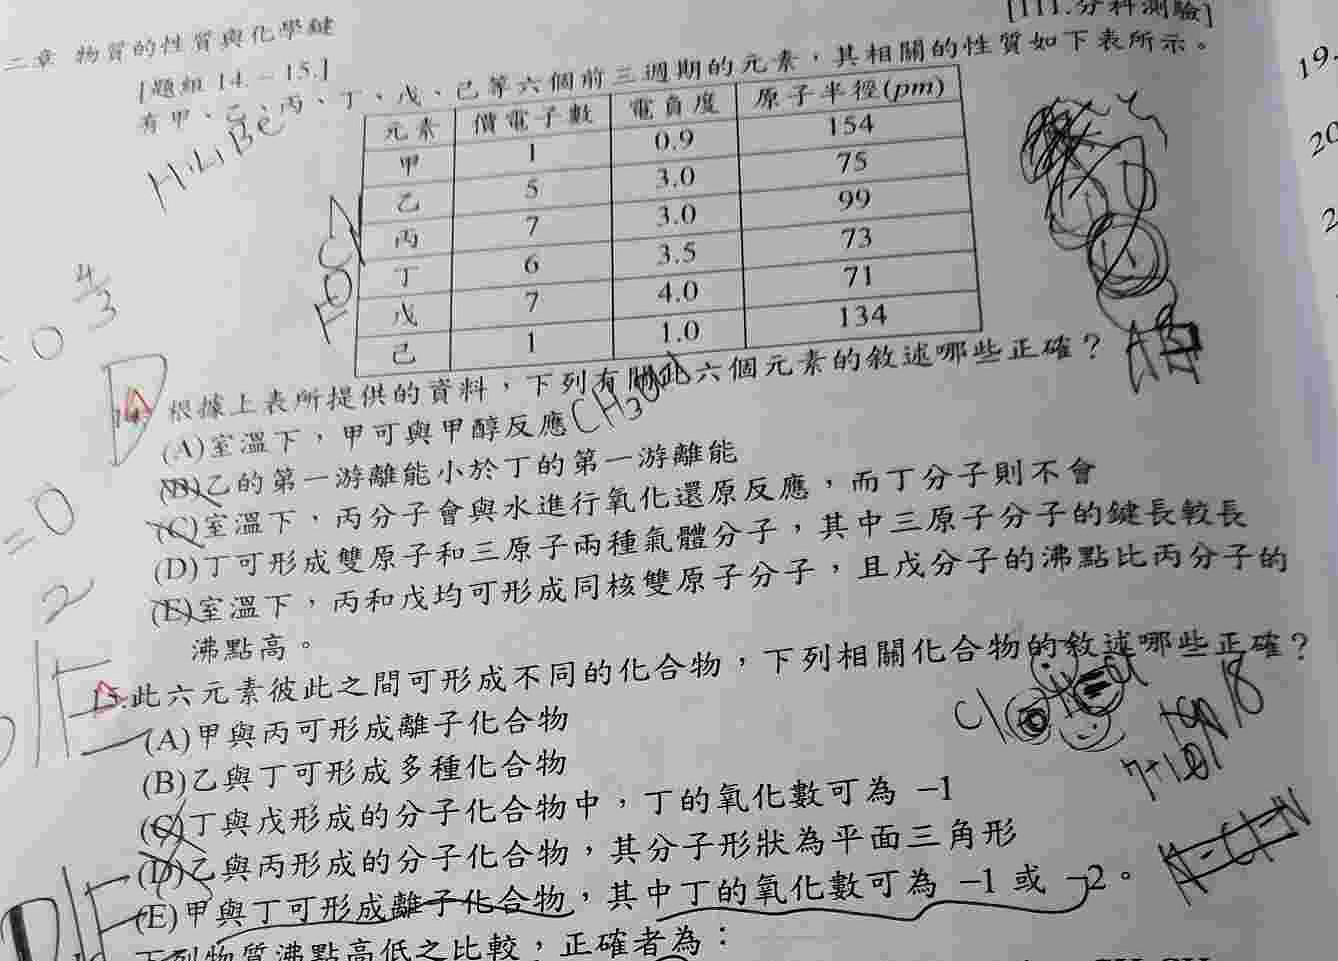 二章 物質的性質與化學鍵
[111.分科測驗]
[題組 14.－15.]
有甲、乙、丙、丁、戊、己等六個前三週期的元素，其相關的性質如下表所示。
H Li Be
元素 價電子數 電負度 原子半徑(pm)
甲 1 0.9 154
乙 5 3.0 75
丙 7 3.0 99
丁 6 3.5 73
戊 7 4.0 71
己 1 1.0 134
19.
20
2
4
3
0
FOCN
根據上表所提供的資料，下列有關此六個元素的敘述哪些正確？
(A)室溫下，甲可與甲醇反應 CH3OH
(B)乙的第一游離能小於丁的第一游離能
(C)室溫下，丙分子會與水進行氧化還原反應，而丁分子則不會
(D)丁可形成雙原子和三原子兩種氣體分子，其中三原子分子的鍵長較長
(E)室溫下，丙和戊均可形成同核雙原子分子，且戊分子的沸點比丙分子的
沸點高。
=0
2
此六元素彼此之間可形成不同的化合物，下列相關化合物的敘述哪些正確？
(A)甲與丙可形成離子化合物
(B)乙與丁可形成多種化合物
(C)丁與戊形成的分子化合物中，丁的氧化數可為 −1
(D)乙與丙形成的分子化合物，其分子形狀為平面三角形
(E)甲與丁可形成離子化合物，其中丁的氧化數可為 −1 或 −2。
下列物質沸點高低之比較，正確者為：